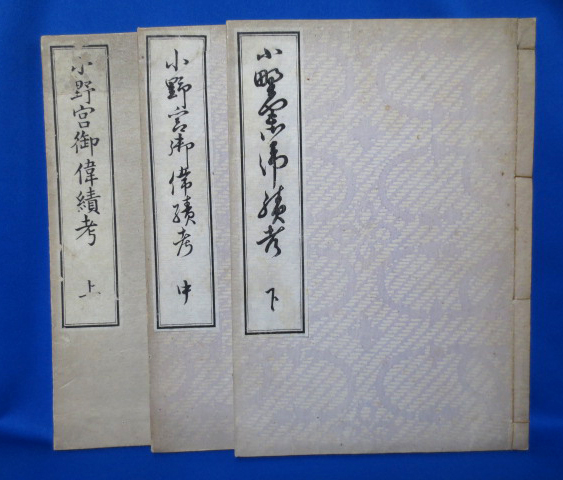 小野宮御偉績考 上
小野宮御偉績考 中
小野宮御偉績考 下